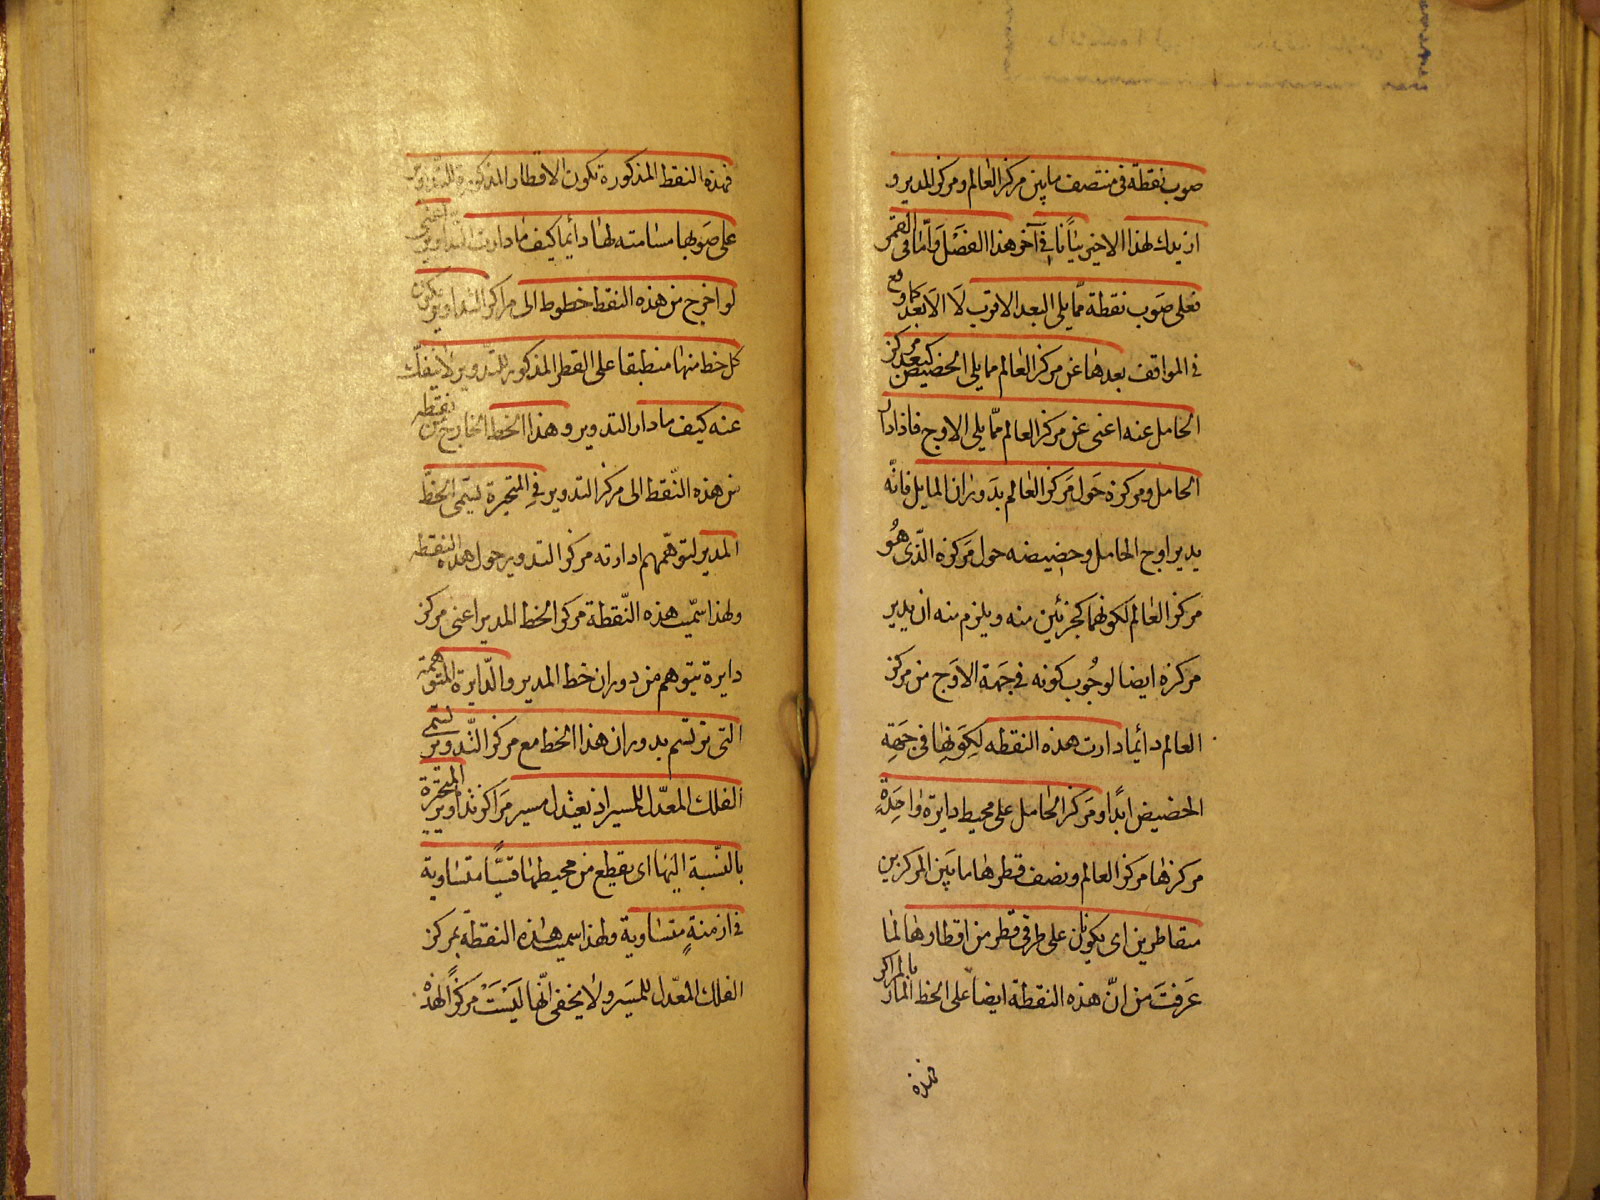 صوب نقطة فى منتصف ما بين مركز العالم ومركز المدير و
ازيدك لهذا الاخير بيانا فى آخر هذا الفصل وامّا فى القمر
فعلى صوب نقطة ممّا يلى البعد الاقرب لا الابعد كما وقع
فى المواقف بعدها عن مركز العالم مما يلى الحضيض كبعد مركز
الحامل عنه اعنى عن مركز العالم ممّا يلى الاوج فاذا دار
الحامل ومركزه حول مركز العالم بدوران المايل فانّه
يدير اوج الحامل وحضيضه حول مركزه الّذى هو
مركز العالم لكونهما كجزئين منه ويلزم منه ان يدير
مركزه ايضا لوجوب كونه فى جهة الاوج من مركز
العالم دائما دارت هذه النقطه لكونها فى جهة
الحضيض ابدًا ومركز الحامل على محيط دايرة واحدةٍ
مركزها مركز العالم ونصف قطرها ما بين المركزين
متقاطرين اى يكونان على طرفى قطر من اقطارها لما
عرفتَ من انّ هذه النقطة ايضاً على الخط المارّ بالمراكز
فهذه
فهذه النقط المذكورة تكون الاقطار المذكورة للتداوير
على صوبها مسامته لها دائما كيف ما دارت التداوير اعنى
لو اخرج من هذه النقط خطوط الى مراكز التداوير يكون
كل خط منها منطبقا على القطر المذكور للتدوير لا ينفكّ
عنه كيف ما دار التدوير وهذا الخط الخارج من نقطه
من هذه النّقط الى مركز التدوير فى المتحيرة يسمّى الخطّ
المدير لتوهّمهم ادارته مركز التدوير حول هذه النقطه
ولهذا سمّيت هذه النّقطة مركز الخط المدير اعنى مركز
دايرة يتوهم من دوران خط المدير والدّايرة المتوهّمة
التى ترتسم بدوران هذا الخط مع مركز التّدوير يسمّى
الفلك المعدّل للمسير اذ يعتدل مسير مراكز تداوير المتحيّرة
بالنّسبة اليها اى يقطع من محيطها قسيًّا متساوية
فى ازمنةٍ متساوية ولهذا سميت هذه النقطة بمركز
الفلك المعدّل للمسير ولا يخفى انّها ليستْ مركزًا لهذه